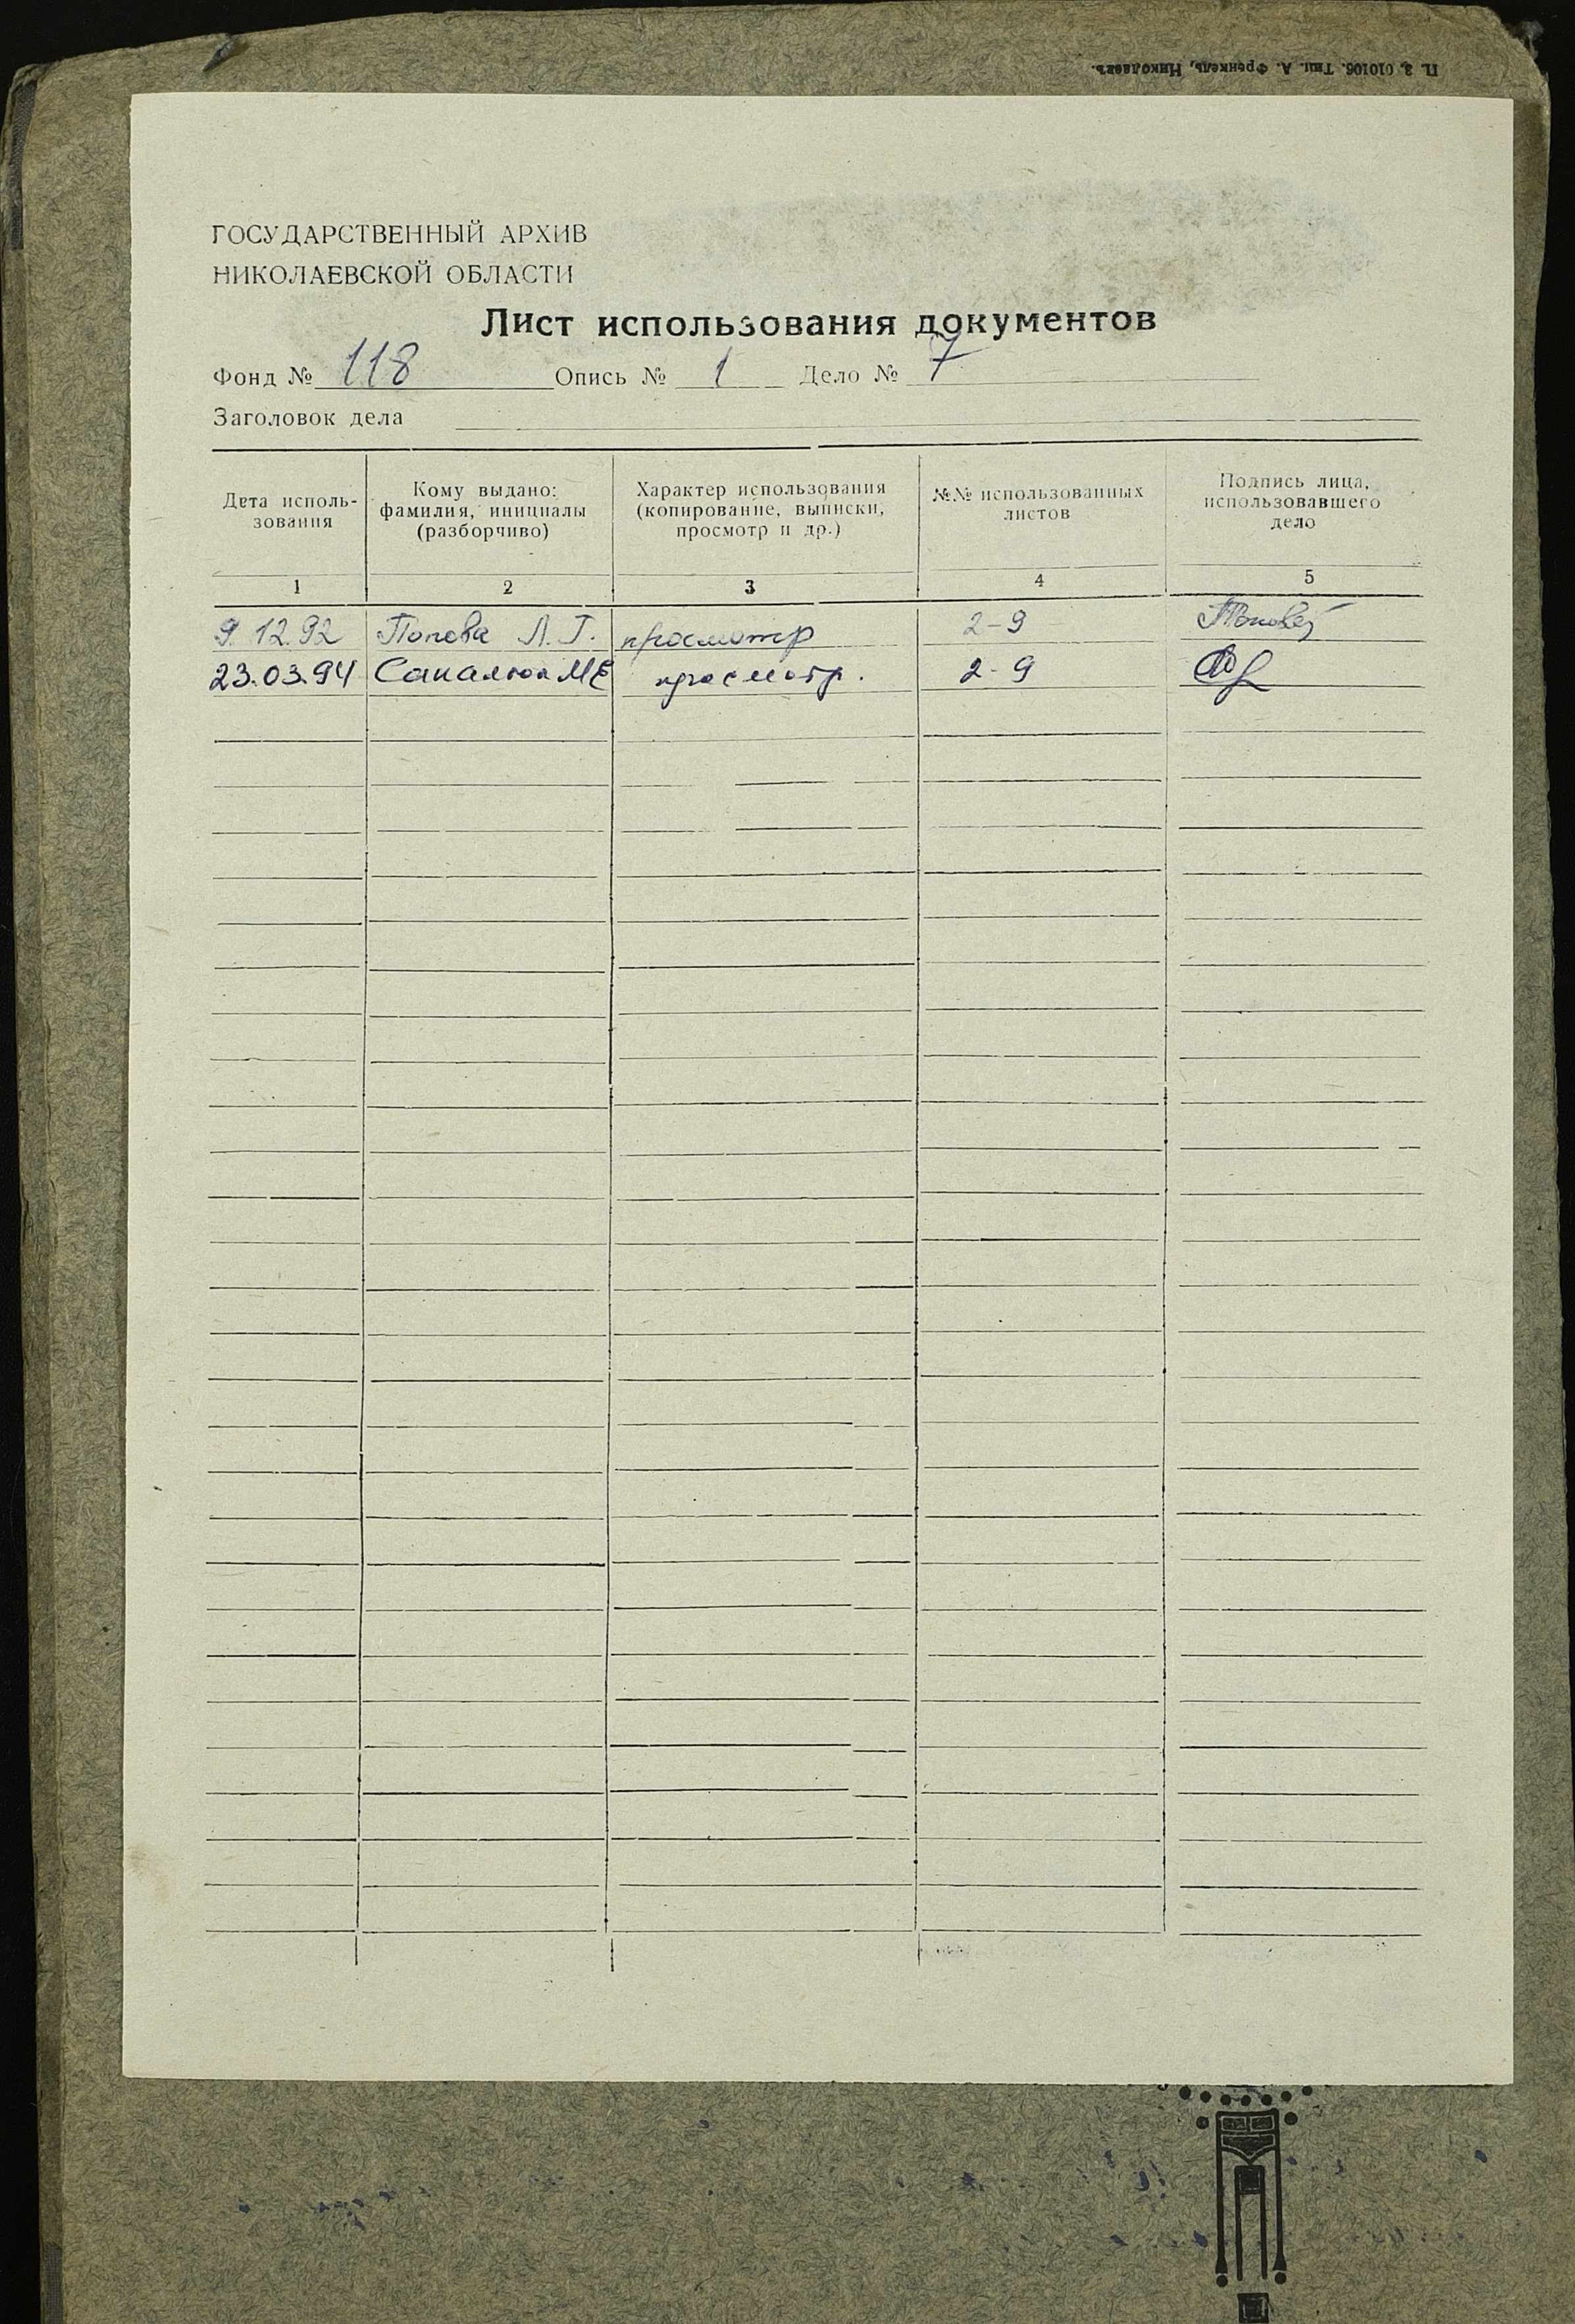 П. З. 010106. Тип. А. Френкель, Николаевъ.
ГОСУДАРСТВЕННЫЙ АРХИВ
НИКОЛАЕВСКОЙ ОБЛАСТИ
Лист использования документов
Фонд № 118 Опись № 1 Дело № 7
Заголовок дела
Дата исполь-
зования
Кому выдано:
фамилия, инициалы
(разборчиво)
Характер использования
(копирование, выписки,
просмотр и др.)
№№ использованных
листов
Подпись лица,
использовавшего
дело
1 2 3 4 5
9.12.92 Попова Л.Г. просмотр 2-9
23.03.94 просмотр. 2-9